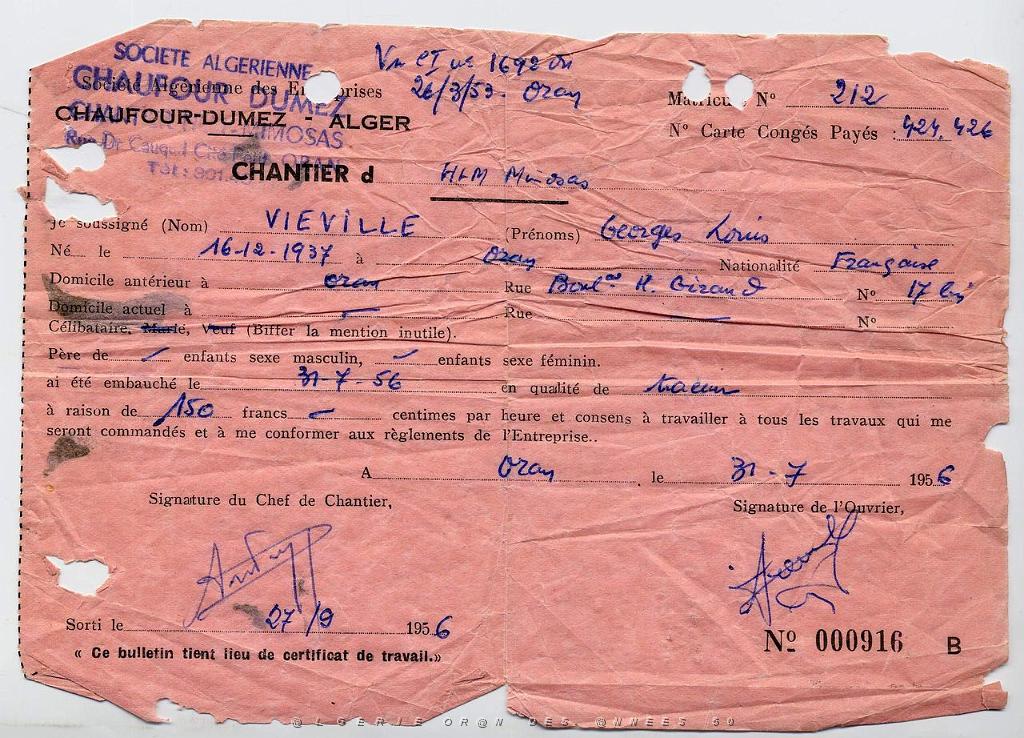 SOCIETE ALGERIENNE
CHAUFOUR DUMEZ
MIMOSAS
Rue Dr Cauquil Cité Petit ORAN
Société Algérienne des Entreprises
CHAUFOUR-DUMEZ - ALGER
Vu CI no 1692 du
26/3/53 Oran
Matricule No 212
No Carte Congés Payés : 424.426
CHANTIER d HLM Mimosas
Je soussigné (Nom) VIEVILLE (Prénoms) Georges Louis
Né le 16-12-1937 à Oran Nationalité Française
Domicile antérieur à Oran Rue Boulard H. Giraud No 17 bis
Domicile actuel à — Rue — No
Célibataire, Marié, Veuf (Biffer la mention inutile).
Père de enfants sexe masculin, enfants sexe féminin.
ai été embauché le 31-7-56 en qualité de traceur
à raison de 150 francs — centimes par heure et consens à travailler à tous les travaux qui me
seront commandés et à me conformer aux règlements de l'Entreprise..
A Oran, le 31-7 1956
Signature du Chef de Chantier, Signature de l'Ouvrier,
Sorti le 27/9 1956
No 000916 B
« Ce bulletin tient lieu de certificat de travail.»
@LGERIE OR@N DES @NNEES 50